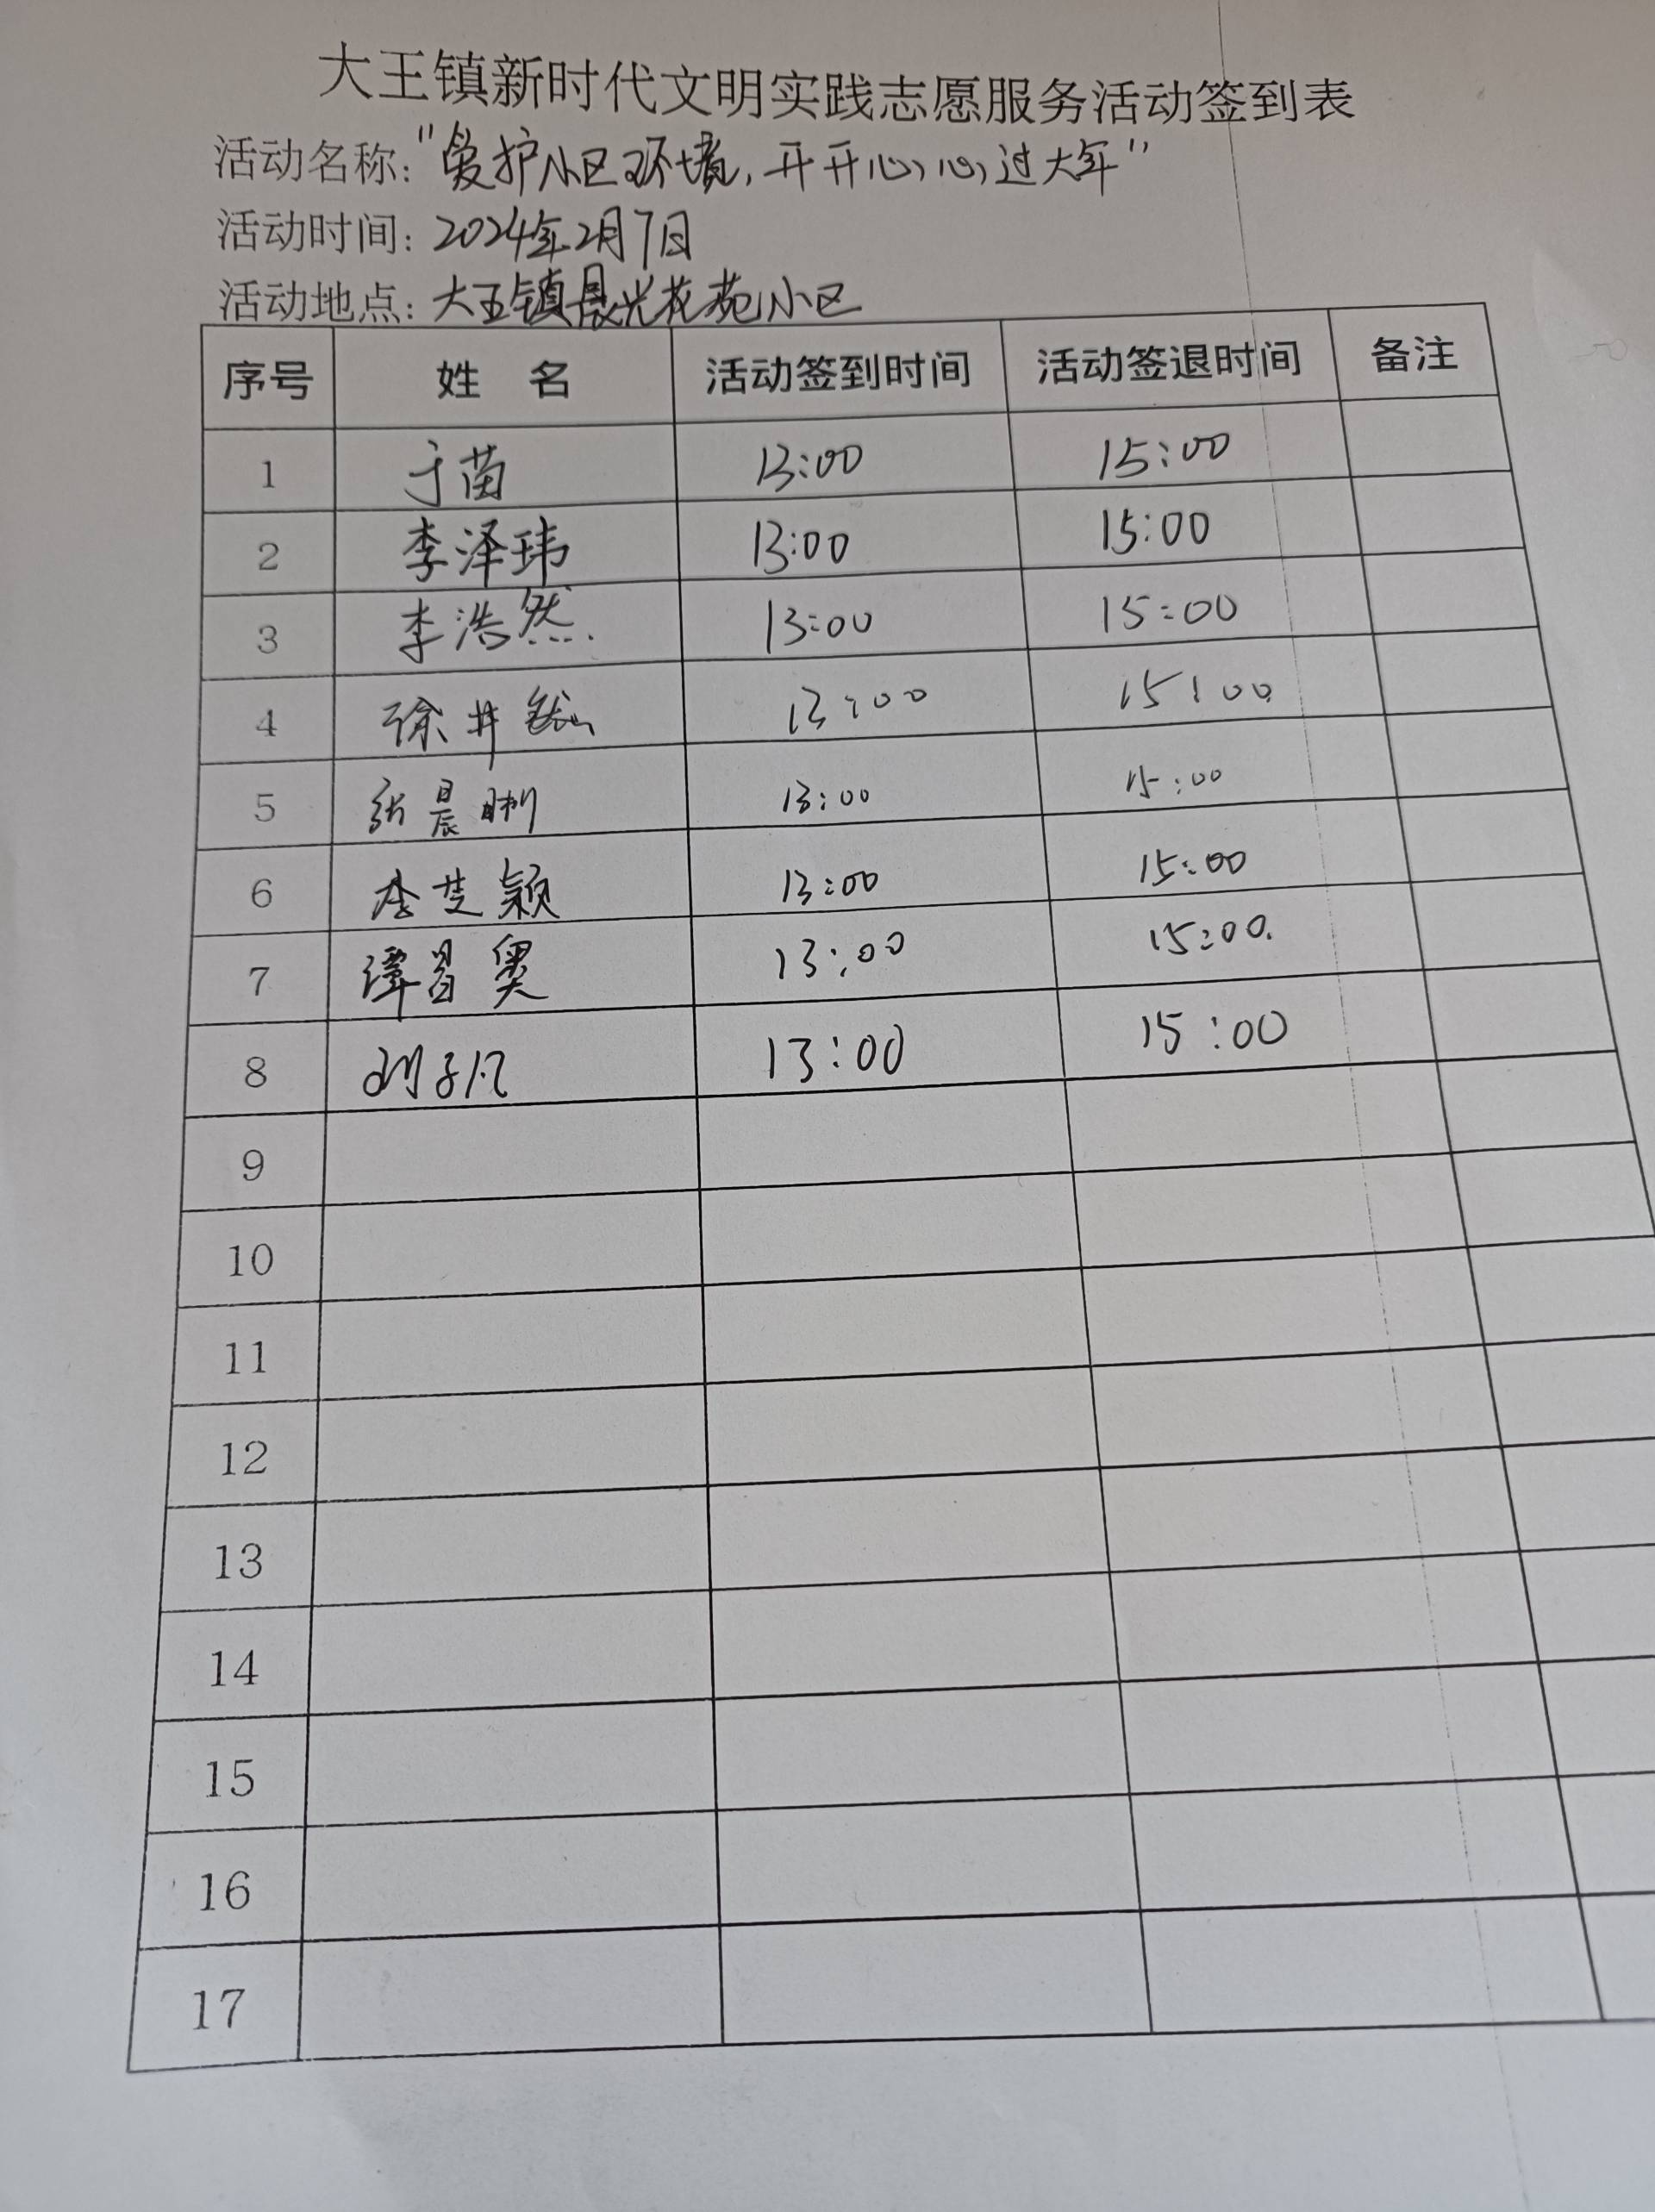 大王镇新时代文明实践志愿服务活动签到表
活动名称:"爱护小区环境,开开心心过大年"
活动时间:2024年2月7日
活动地点:大王镇晨光花苑小区
序号 姓 名 活动签到时间 活动签退时间 备注
1 于苗 13:00 15:00
2 李泽玮 13:00 15:00
3 李浩然 13:00 15:00
4 徐井 13:00 15:00
5 张晨 13:00 15:00
6 李芝颖 13:00 15:00
7 谭昌奥 13:00 15:00.
8 刘子凡 13:00 15:00
9
10
11
12
13
14
15
16
17